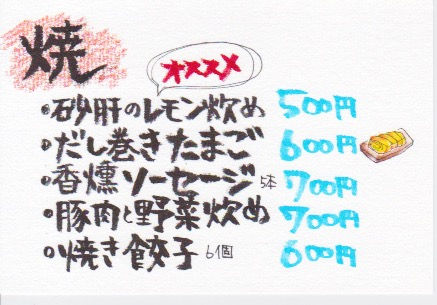 焼
オススメ
砂肝のレモン炒め 500円
だし巻きたまご 600円
香燻ソーセージ 5本 700円
豚肉と野菜炒め 700円
焼き餃子 6個 600円